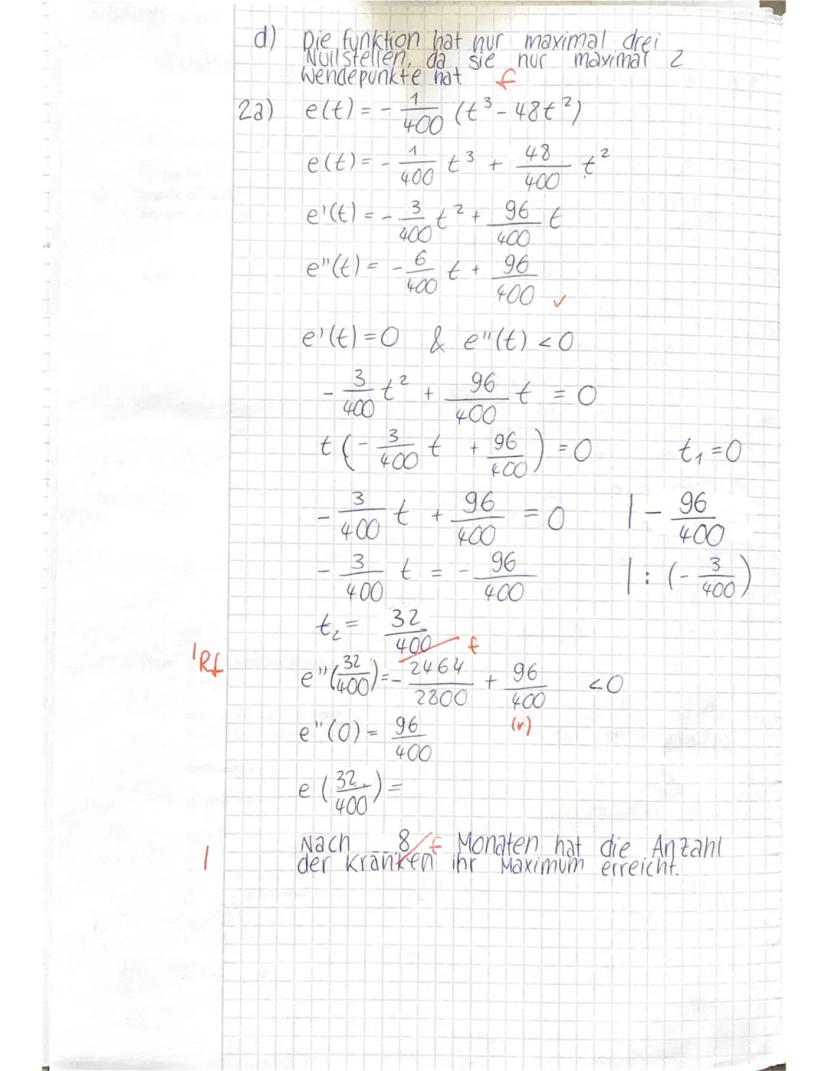 d) Die funktion hat nur maximal drei
Nullstellen, da sie nur maximal 2
Wendepunkte hat. f
2a) e(t) = - 1/400 (t³ - 48t²)
e(t) = - 1/400 t³ + 48/400 t²
e'(t) = - 3/400 t² + 96/400 t
e''(t) = - 6/400 t + 96/400 ✓
e'(t) = 0 & e''(t) < 0
- 3/400 t² + 96/400 t = 0
t (- 3/400 t + 96/400) = 0 t₁ = 0
- 3/400 t + 96/400 = 0 | - 96/400
- 3/400 t = - 96/400 | : (- 3/400)
t₂ = 32/400 f
Rf e''(32/400) = - 2464/2800 + 96/400 < 0
(r)
e''(0) = 96/400
e(32/400) =
Nach 8 f Monaten hat die Anzahl
der Kranken ihr Maximum erreicht.